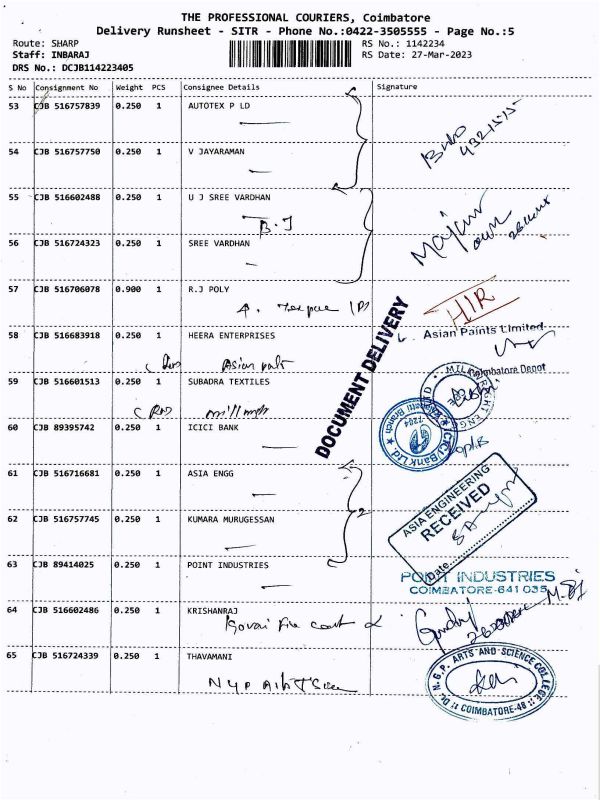 THE PROFESSIONAL COURIERS, Coimbatore
Delivery Runsheet - SITR - Phone No.:0422-3505555 - Page No.:5
Route: SHARP
RS No.: 1142234
Staff: INBARAJ
RS Date: 27-Mar-2023
DRS No.: DCJB114223405
S No Consignment No Weight PCS Consignee Details Signature
53 CJB 516757839 0.250 1 AUTOTEX P LD
54 CJB 516757750 0.250 1 V JAYARAMAN
55 CJB 516602488 0.250 1 U J SREE VARDHAN
B.J
56 CJB 516724323 0.250 1 SREE VARDHAN
57 CJB 516706078 0.900 1 R.J POLY
HIR
DOCUMENT DELIVERY
Asian Paints Limited
58 CJB 516683918 0.250 1 HEERA ENTERPRISES
Coimbatore Depot
59 CJB 516601513 0.250 1 SUBADRA TEXTILES
60 CJB 89395742 0.250 1 ICICI BANK
ICICI Bank Ltd.
61 CJB 516716681 0.250 1 ASIA ENGG
ASIA ENGINEERING
RECEIVED
Date
62 CJB 516757745 0.250 1 KUMARA MURUGESSAN
63 CJB 89414025 0.250 1 POINT INDUSTRIES
POINT INDUSTRIES
COIMBATORE-641 035
64 CJB 516602486 0.250 1 KRISHANRAJ
65 CJB 516724339 0.250 1 THAVAMANI
Dr. N.G.P. ARTS AND SCIENCE COLLEGE
COIMBATORE-48